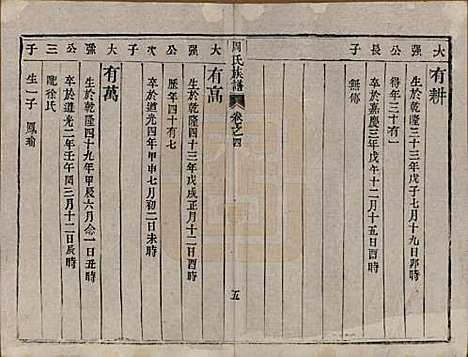 大強公長子
有耕
生於乾隆三十三年戊子七月十九日卯時
得年三十有一
卒於嘉慶三年戊午十二月十一日酉時
無傳
周氏族譜 卷之四 五
大強公次子
有高
生於乾隆四十三年戊戌正月十二日酉時
歷年四十有七
卒於道光四年甲申七月初二日未時
大強公三子
有萬
生於乾隆四十九年甲辰六月念一日丑時
卒於道光二年壬午閏三月十二日辰時
配徐氏
生一子 鳳瑜